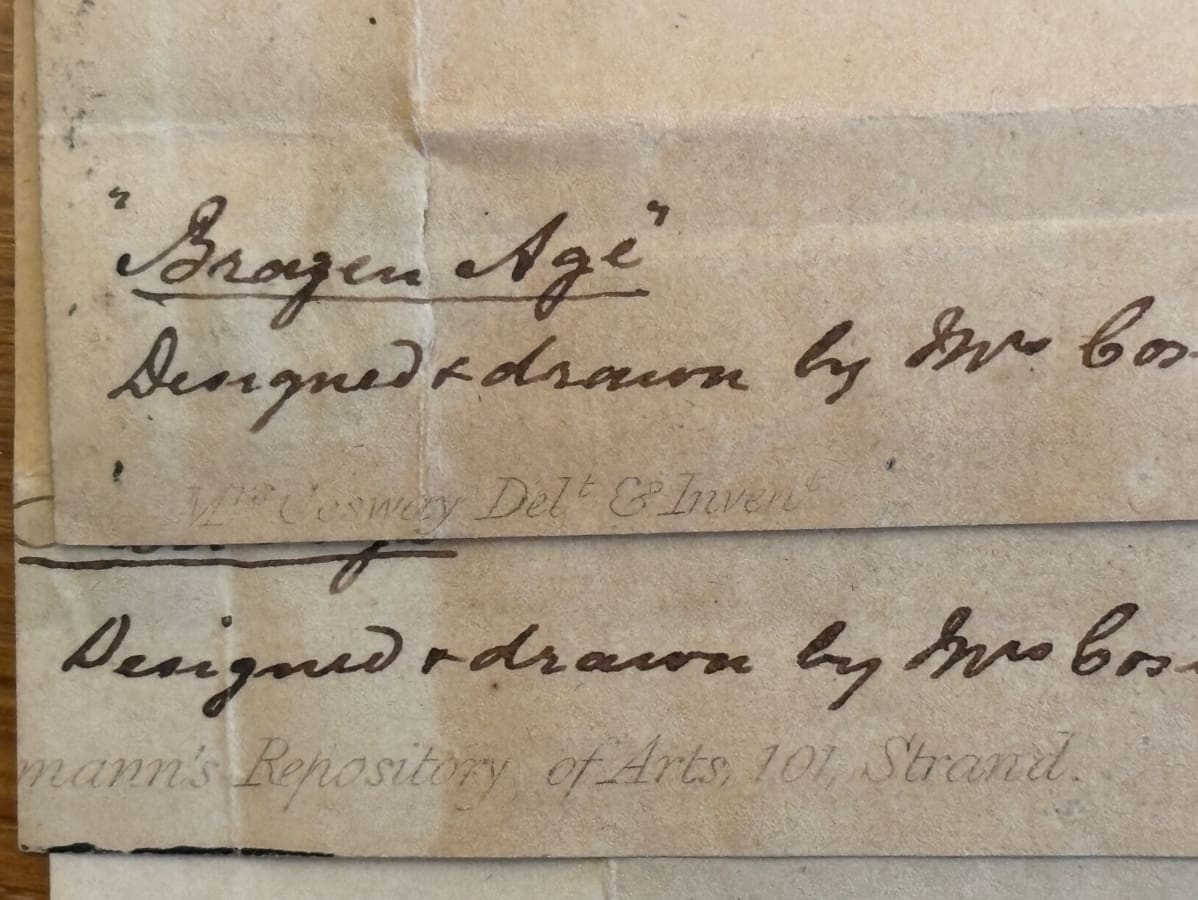 "Brazen Age"
Designed & drawn by Mrs Cos
Mrs Cosway Delt & Invent
Designed & drawn by Mrs Cos
mann's Repository of Arts, 101, Strand.